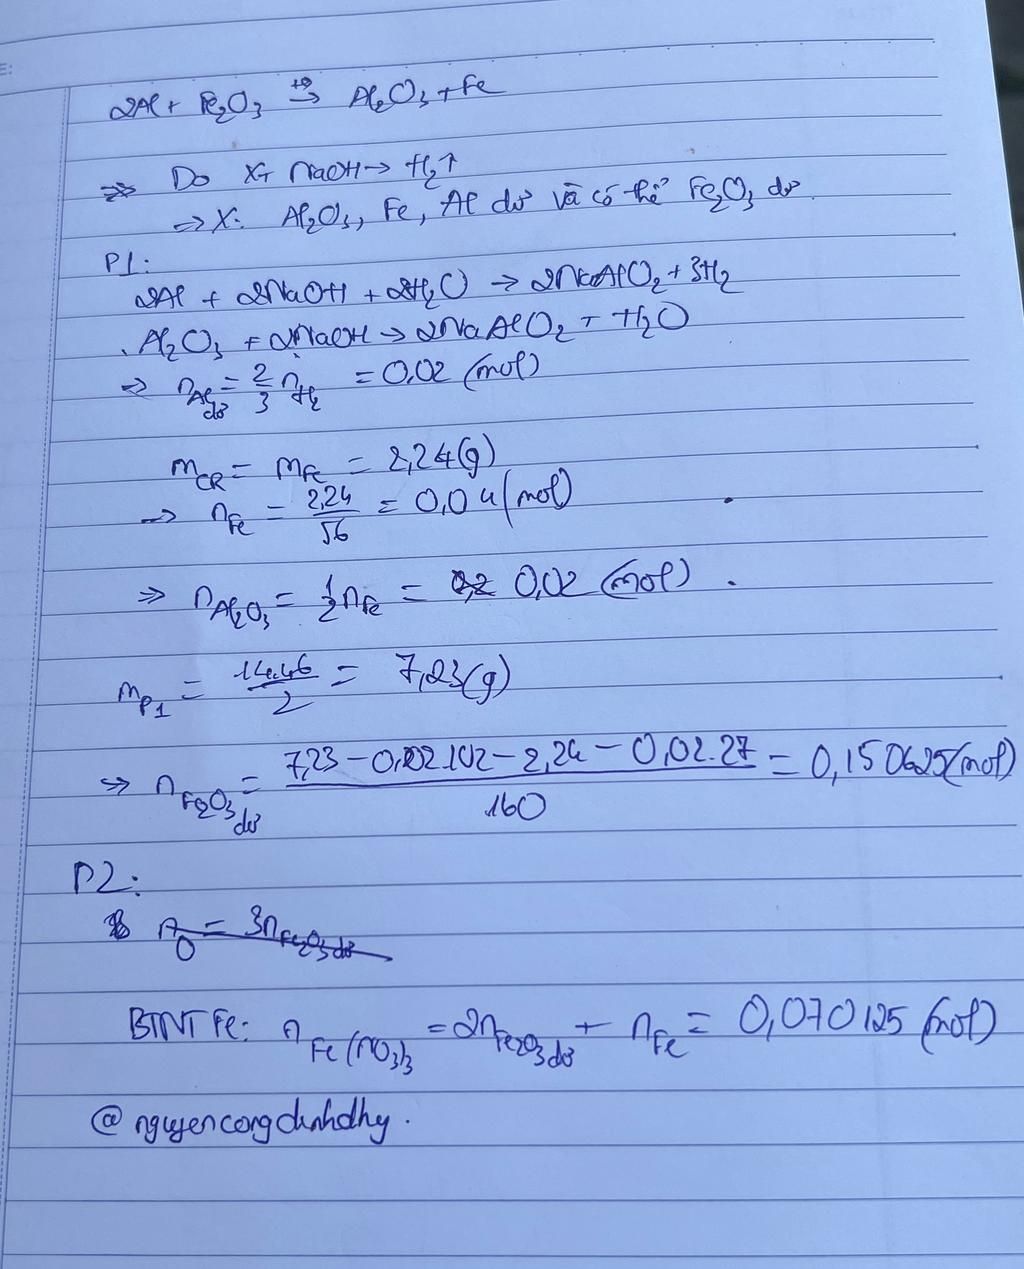 2Al + Fe₂O₃ →(t°) Al₂O₃ + Fe
=> Do X + NaOH → H₂↑
=> X: Al₂O₃, Fe, Al dư và có thể Fe₂O₃ dư.
P1:
2Al + 2NaOH + 2H₂O → 2NaAlO₂ + 3H₂
Al₂O₃ + 2NaOH → 2NaAlO₂ + H₂O
=> n_Al dư = 2/3 n_H₂ = 0,02 (mol)
m_CR = m_Fe = 2,24 (g)
=> n_Fe = 2,24/56 = 0,04 (mol)
=> n_Al₂O₃ = 1/2 n_Fe = 0,02 (mol).
m_P1 = 14.46/2 = 7,23 (g)
=> n_Fe₂O₃ dư = (7,23 - 0,02.102 - 2,24 - 0,02.27)/160 = 0,150625 (mol)
P2:
n_O = 3n_Fe₂O₃ dư
BTNT Fe: n_Fe(NO₃)₃ = 2n_Fe₂O₃ dư + n_Fe = 0,070125 (mol)
@nguyencongdinhdhy.